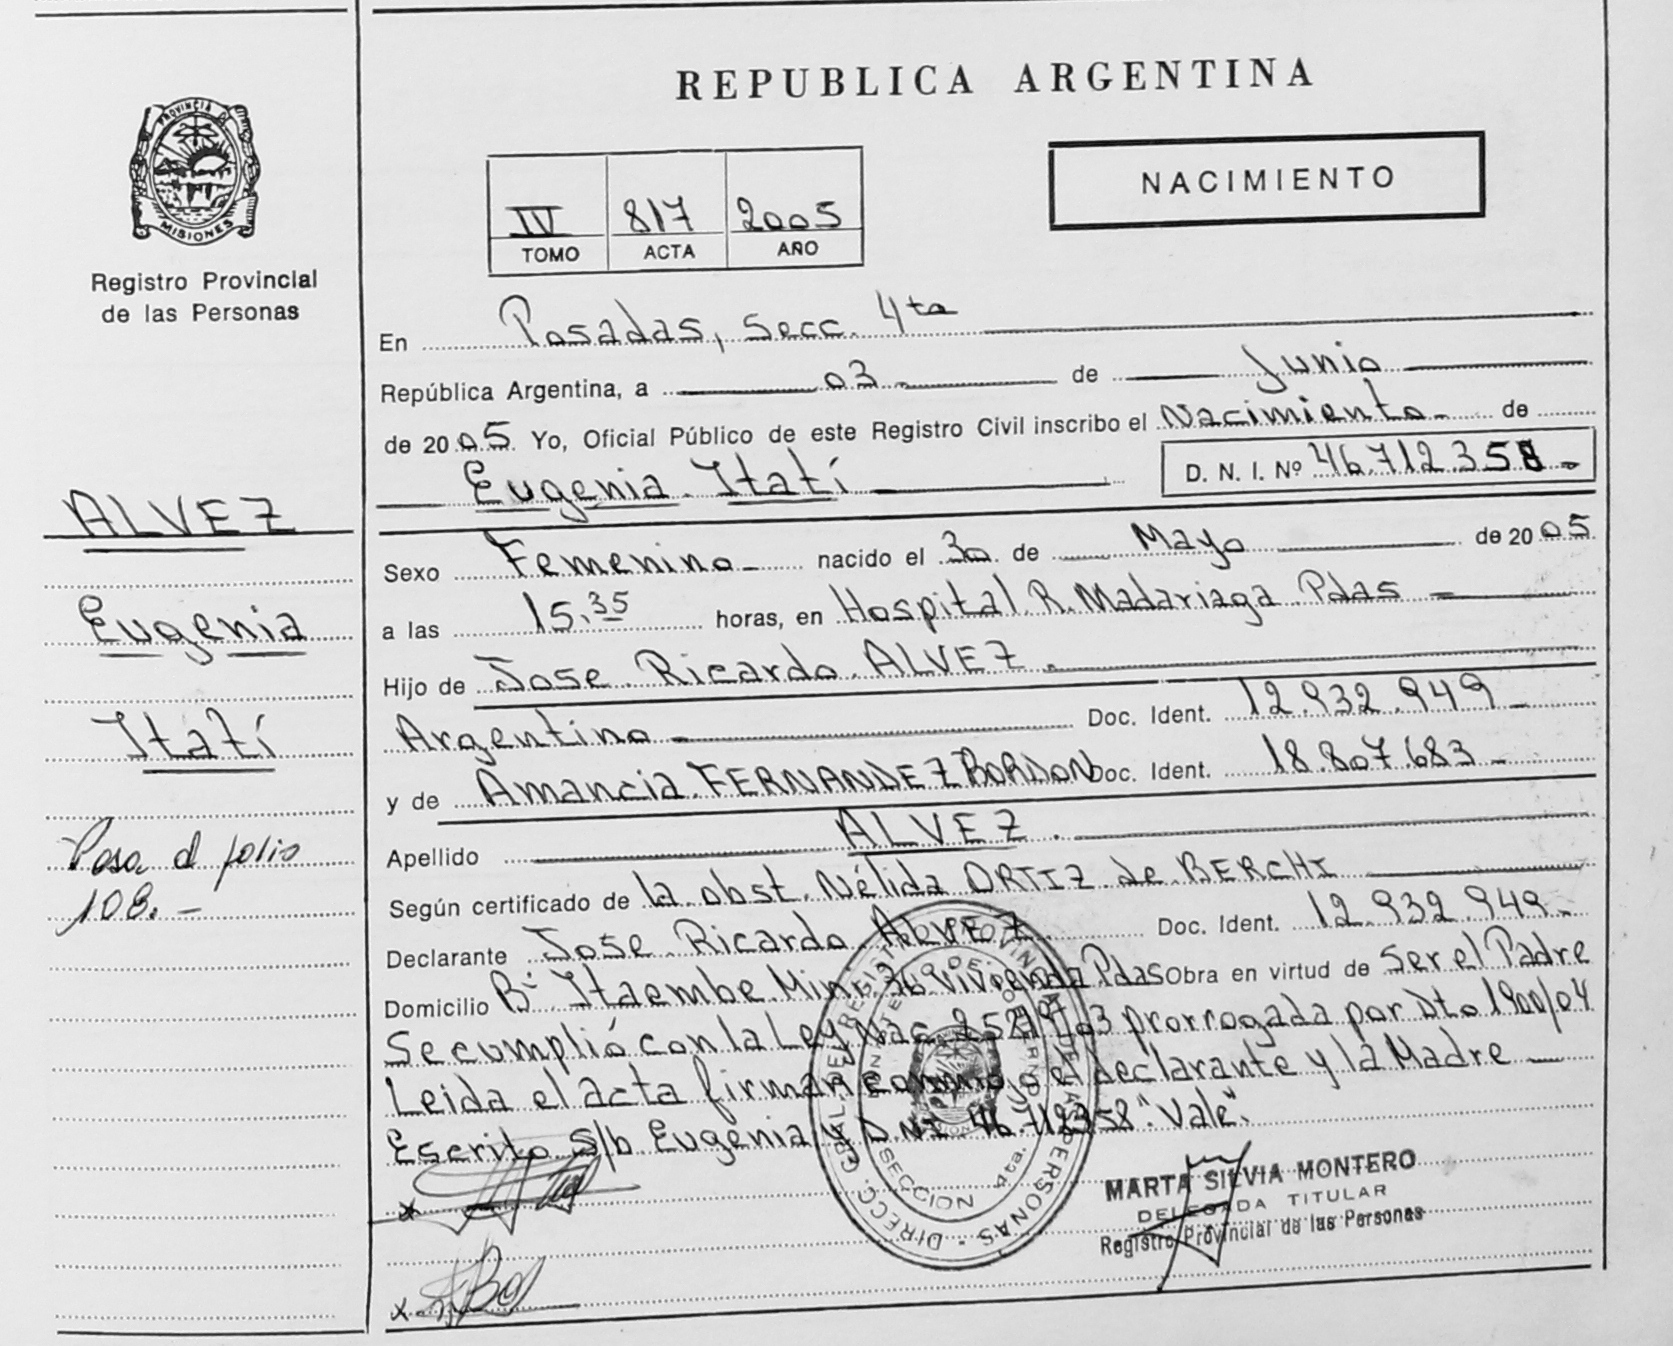 REPUBLICA ARGENTINA
PROVINCIA DE
MISIONES
Registro Provincial
de las Personas
NACIMIENTO
IV 817 2005
TOMO ACTA AÑO
En Posadas, Secc. 4ta
República Argentina, a 03 de Junio
de 2005 Yo, Oficial Público de este Registro Civil inscribo el Nacimiento de
Eugenia Itatí D. N. I. Nº 46.712.358
Sexo Femenino nacido el 30 de Mayo de 2005
a las 15.35 horas, en Hospital R. Madariaga Pdas
Hijo de Jose Ricardo ALVEZ
Argentino Doc. Ident. 12.932.949
y de Amancia FERNANDEZ BORDON Doc. Ident. 18.807.683
Apellido ALVEZ
Según certificado de la obst. Nélida ORTIZ de BERCHI
Declarante Jose Ricardo ALVEZ Doc. Ident. 12.932.949
Domicilio Bº Itaembe Mini 36 Vivienda Pdas Obra en virtud de Ser el Padre
Se cumplió con la Ley Nac. 25819/03 prorrogada por Dto 1900/04
Leida el acta firman conmigo el declarante y la Madre
Escrito S/b Eugenia y DNI 46.712358 "Vale".
ALVEZ
Eugenia
Itatí
Pasa al folio
108.-
DIRECC. GRAL. DEL REGISTRO PROVINCIAL DE LAS PERSONAS
MINISTERIO DE GOBIERNO
SECCION 4ta.
MARTA SILVIA MONTERO
DELEGADA TITULAR
Registro Provincial de las Personas